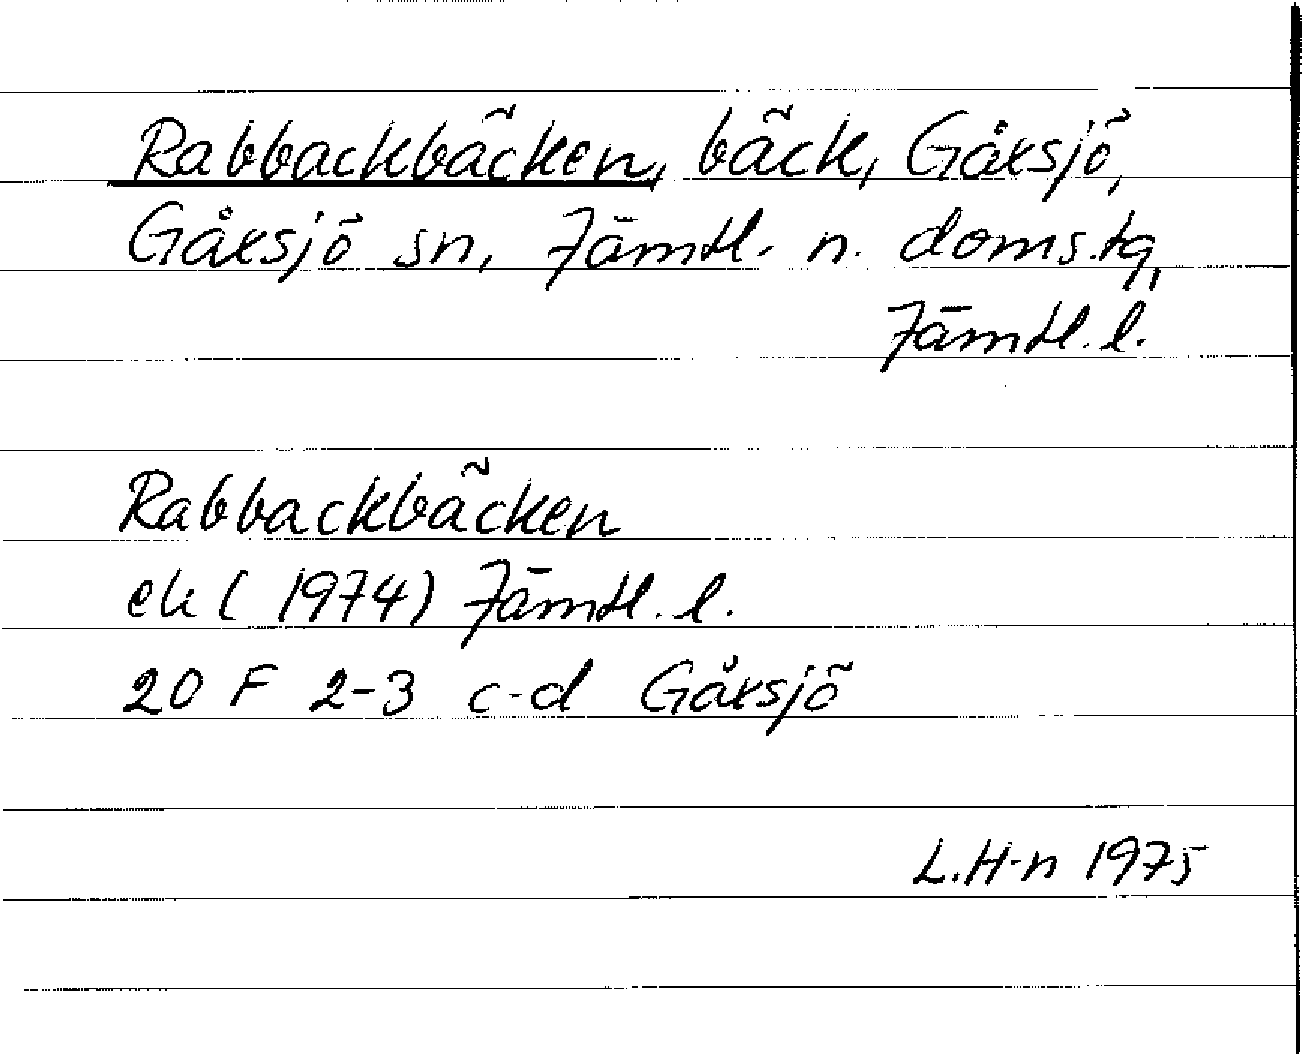 Rabbackbäcken, bäck, Gåxsjö,
Gåxsjö sn, Jämtl. n. doms.tg,
Jämtl. l.
Rabbackbäcken
ek (1974) Jämtl. l.
20 F 2-3 c-d Gåxsjö
L.H-n 1975